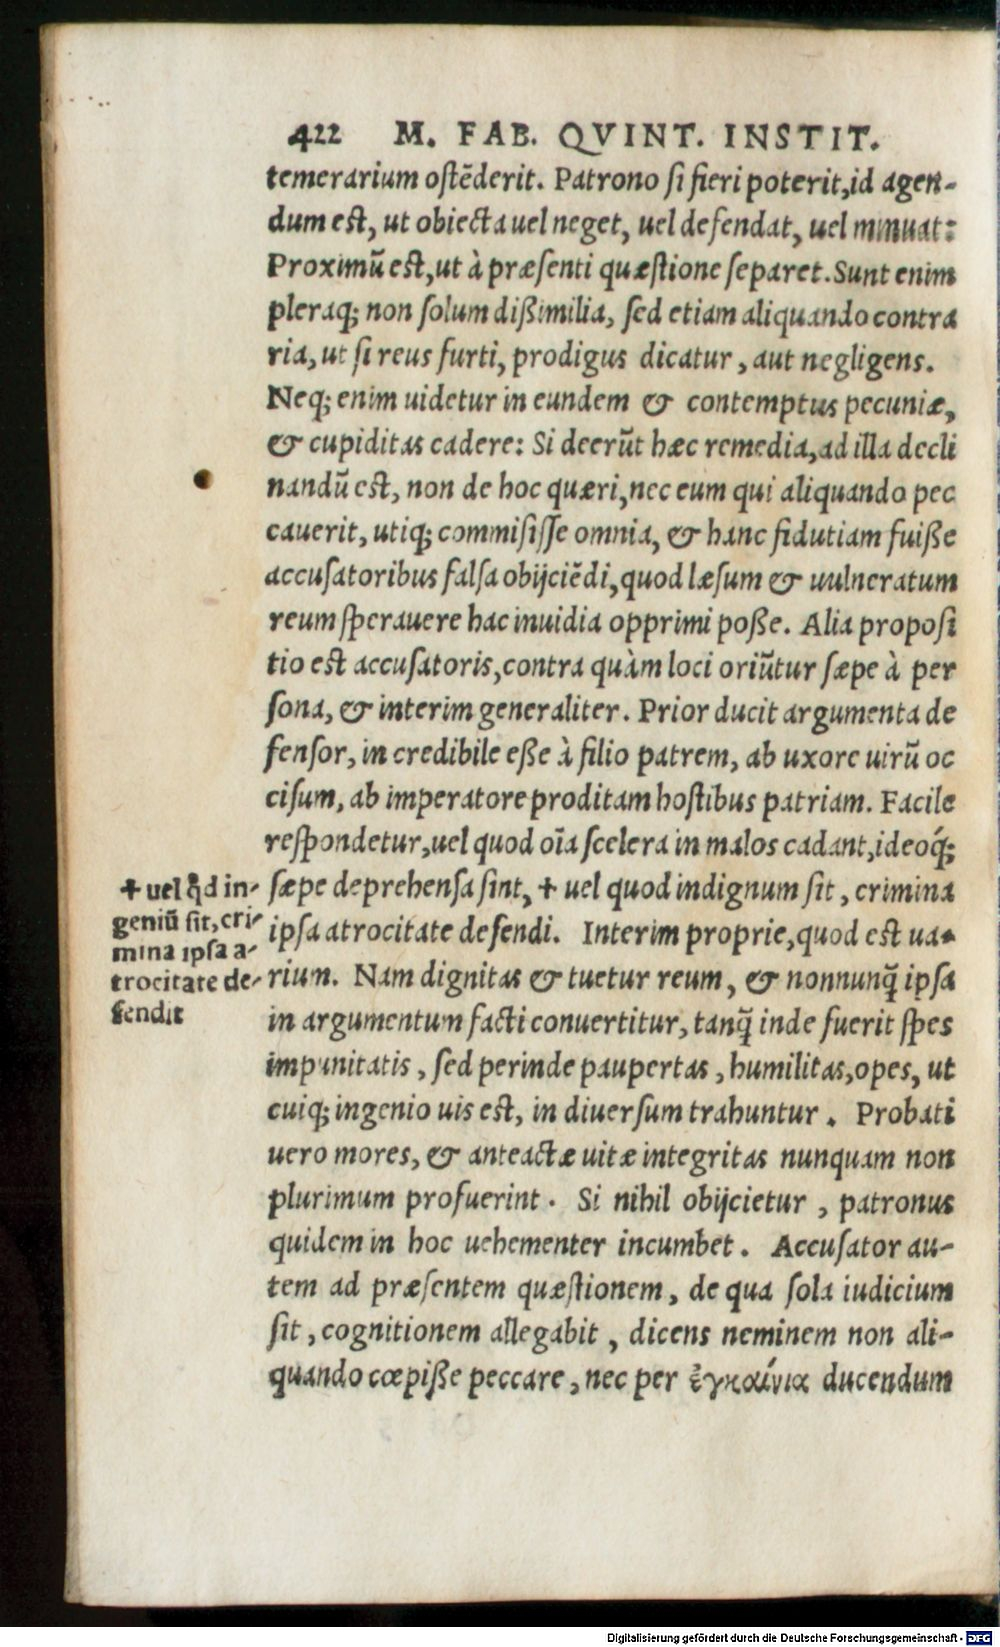 422 M. FAB. QVINT. INSTIT.
temerarium ostēderit. Patrono si fieri poterit, id agen-
dum est, ut obiecta uel neget, uel defendat, uel minuat:
Proximū est, ut à præsenti quæstione separet. Sunt enim
pleraq; non solum dißimilia, sed etiam aliquando contra
ria, ut si reus furti, prodigus dicatur, aut negligens.
Neq; enim uidetur in eundem & contemptus pecuniæ,
& cupiditas cadere: Si deerūt hæc remedia, ad illa decli
nandū est, non de hoc quæri, nec eum qui aliquando pec
cauerit, utiq; commisisse omnia, & hanc fidutiam fuiße
accusatoribus falsa obijciēdi, quod læsum & uulneratum
reum sperauere hac inuidia opprimi poße. Alia proposi
tio est accusatoris, contra quàm loci oriūtur sæpe à per
sona, & interim generaliter. Prior ducit argumenta de
fensor, in credibile eße à filio patrem, ab uxore uirū oc
cisum, ab imperatore proditam hostibus patriam. Facile
respondetur, uel quod oīa scelera in malos cadant, ideoq́;
sæpe deprehensa sint, + uel quod indignum sit, crimina
ipsa atrocitate defendi. Interim proprie, quod est ua-
rium. Nam dignitas & tuetur reum, & nonnunq̄ ipsa
in argumentum facti conuertitur, tanq̄ inde fuerit spes
impunitatis, sed perinde paupertas, humilitas, opes, ut
cuiq; ingenio uis est, in diuersum trahuntur. Probati
uero mores, & anteactæ uitæ integritas nunquam non
plurimum profuerint. Si nihil obijcietur, patronus
quidem in hoc uehementer incumbet. Accusator au-
tem ad præsentem quæstionem, de qua sola iudicium
sit, cognitionem allegabit, dicens neminem non ali-
quando cœpiße peccare, nec per ἐγκαίνια ducendum
+ uel qd in-
geniū sit, cri-
mina ipsa a-
trocitate de-
fendit
Digitalisierung gefördert durch die Deutsche Forschungsgemeinschaft - DFG